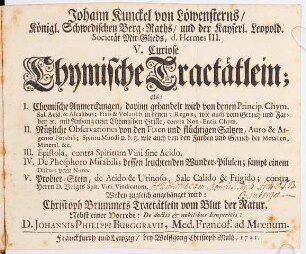 Johann Kunckel von Löwensterns/
Königl. Schwedischen Berg-Raths/ und der Kayserl. Leopold.
Societät Mit-Glieds, d. Hermes III.
V. Curiose
Chymische Tractätlein;
als:
I. Chymische Anmerckungen, darinn gehandelt wird von denen Princip. Chym.
Sal. Acid. & Alcalibus, Fixis & Volatilib. in denen 3. Regnis; wie auch vom Geruch und Far-
ben ꝛc. mit Anhang einer Chymischen Brille, contra Non-Entia Chym.
II. Nützliche Observationes von den Fixen und flüchtigen Saltzen, Auro & Ar-
gento Potabili; Spiritu Mundi u. d. g. wie auch von den Farben und Geruch der Metallen,
Mineral. &c.
III. Epistola, contra Spiritum Vini sine Acido.
IV. De Phosphoro Mirabili; dessen leuchtenden Wunder-Pilulen; sampt einem
V. Probier-Stein, de Acido & Urinoso, Sale Calido & Frigido; contra
Herrn D. Voigts Spir. Vini Vindicatum.
Wobey zugleich angehängt wird:
Christoph Brummets Tractätlein vom Blut der Natur.
Nebst einer Vorrede: De doctis & nobilibus Empiricis:
D. JOHANNIS PHILIPPI BURGGRAVII, Med. Francof. ad Mœnum.
Franckfurth und Leipzig/ bey Wolffgang Christoph Multz. 1721.